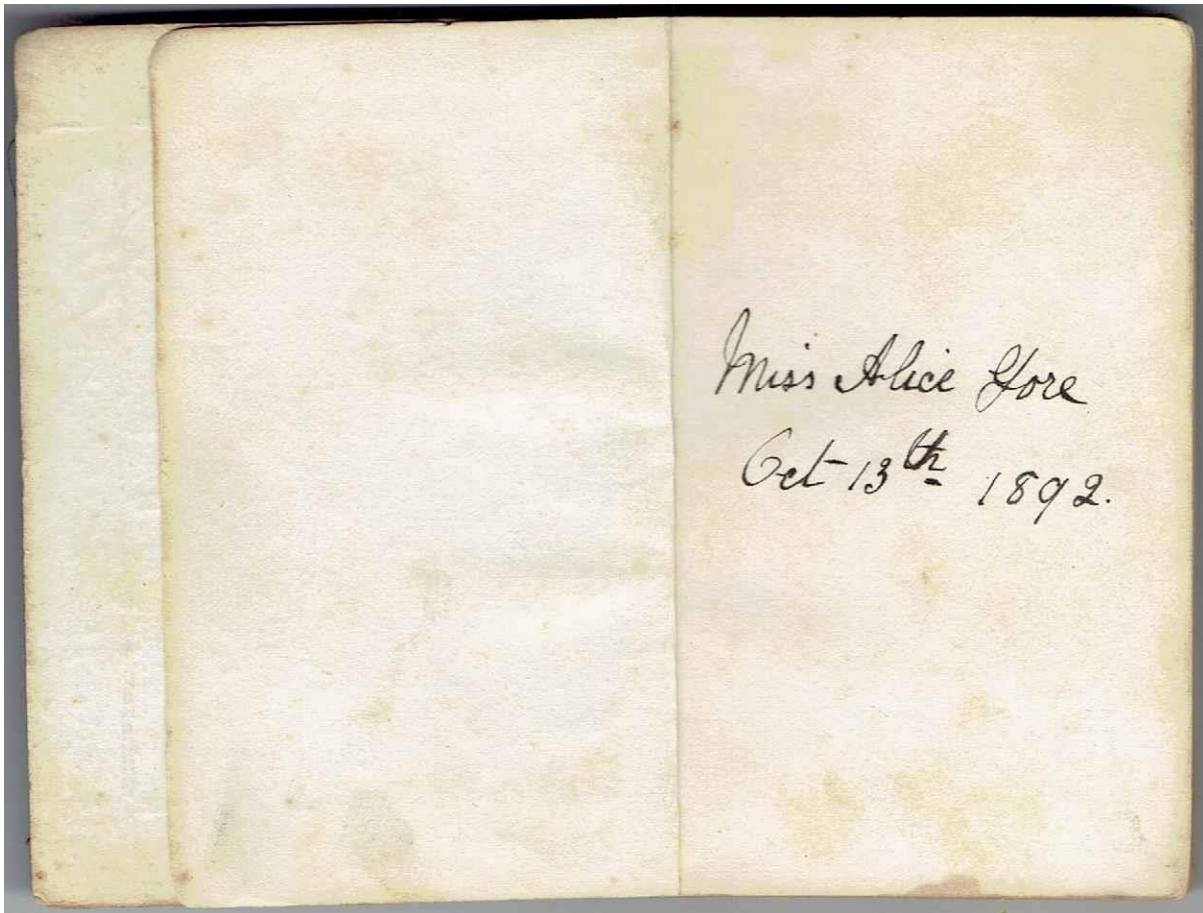 Miss Alice Yore
Oct 13th 1892.